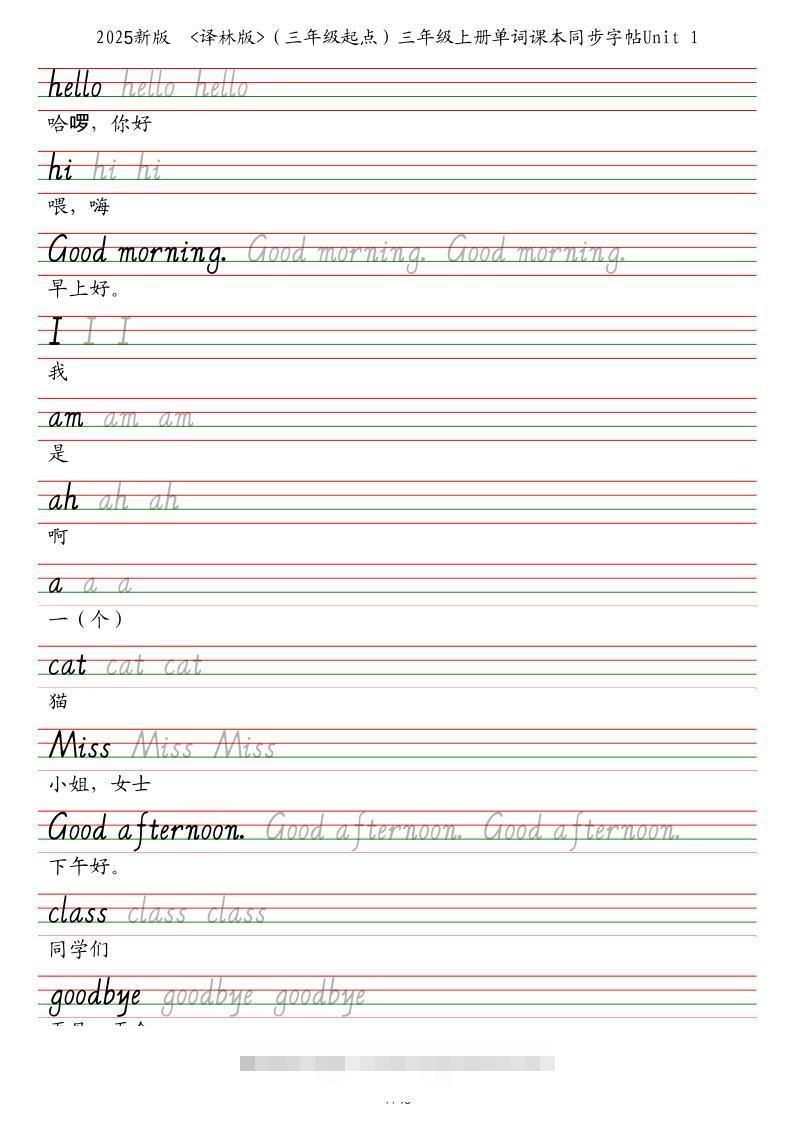 2025新版 <译林版>（三年级起点）三年级上册单词课本同步字帖Unit 1
hello hello hello
哈啰，你好
hi hi hi
喂，嗨
Good morning. Good morning. Good morning.
早上好。
I I I
我
am am am
是
ah ah ah
啊
a a a
一（个）
cat cat cat
猫
Miss Miss Miss
小姐，女士
Good afternoon. Good afternoon. Good afternoon.
下午好。
class class class
同学们
goodbye goodbye goodbye